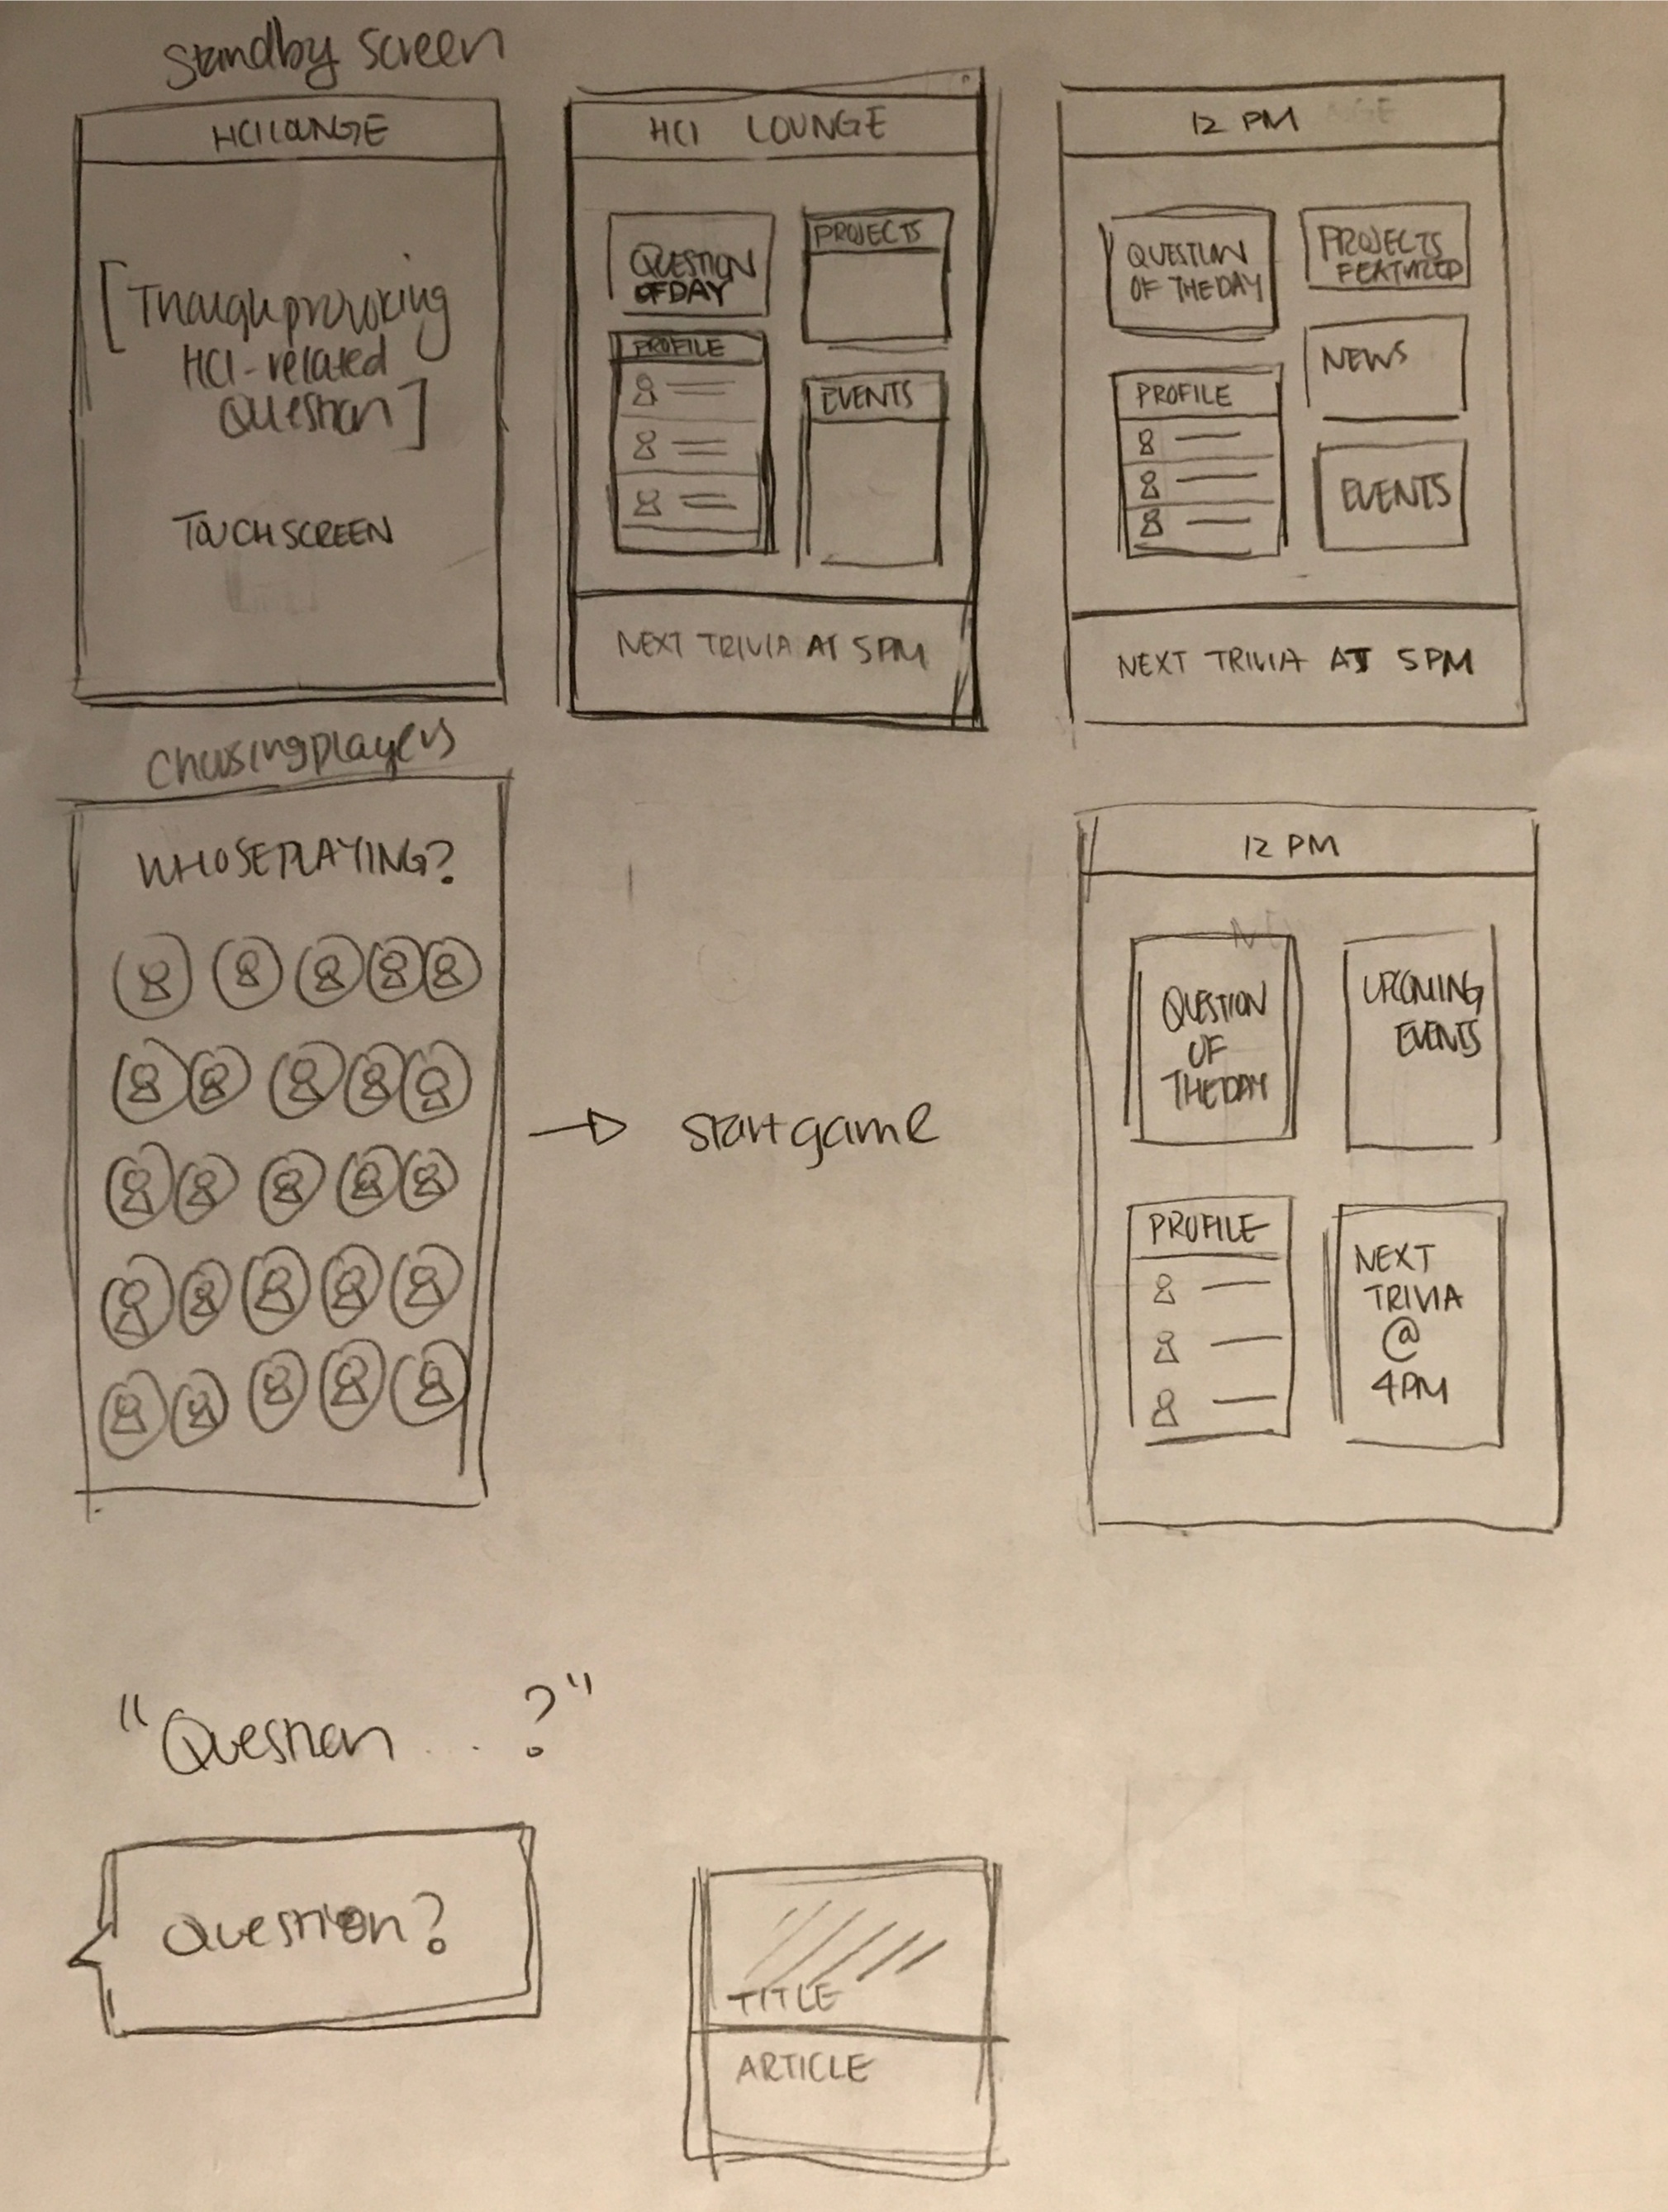 Standby screen
HCI LOUNGE
[Thoughprovoking
HCI-related
Question]
TOUCH SCREEN
HCI LOUNGE
QUESTION
OF DAY
PROJECTS
PROFILE
EVENTS
NEXT TRIVIA AT 5PM
12 PM
QUESTION
OF THE DAY
PROJECTS
FEATURED
NEWS
PROFILE
EVENTS
NEXT TRIVIA AT 5PM
Choosing players
WHOSE PLAYING?
→ start game
12 PM
QUESTION
OF
THE DAY
UPCOMING
EVENTS
PROFILE
NEXT
TRIVIA
@
4PM
"Question...?"
Question?
TITLE
ARTICLE